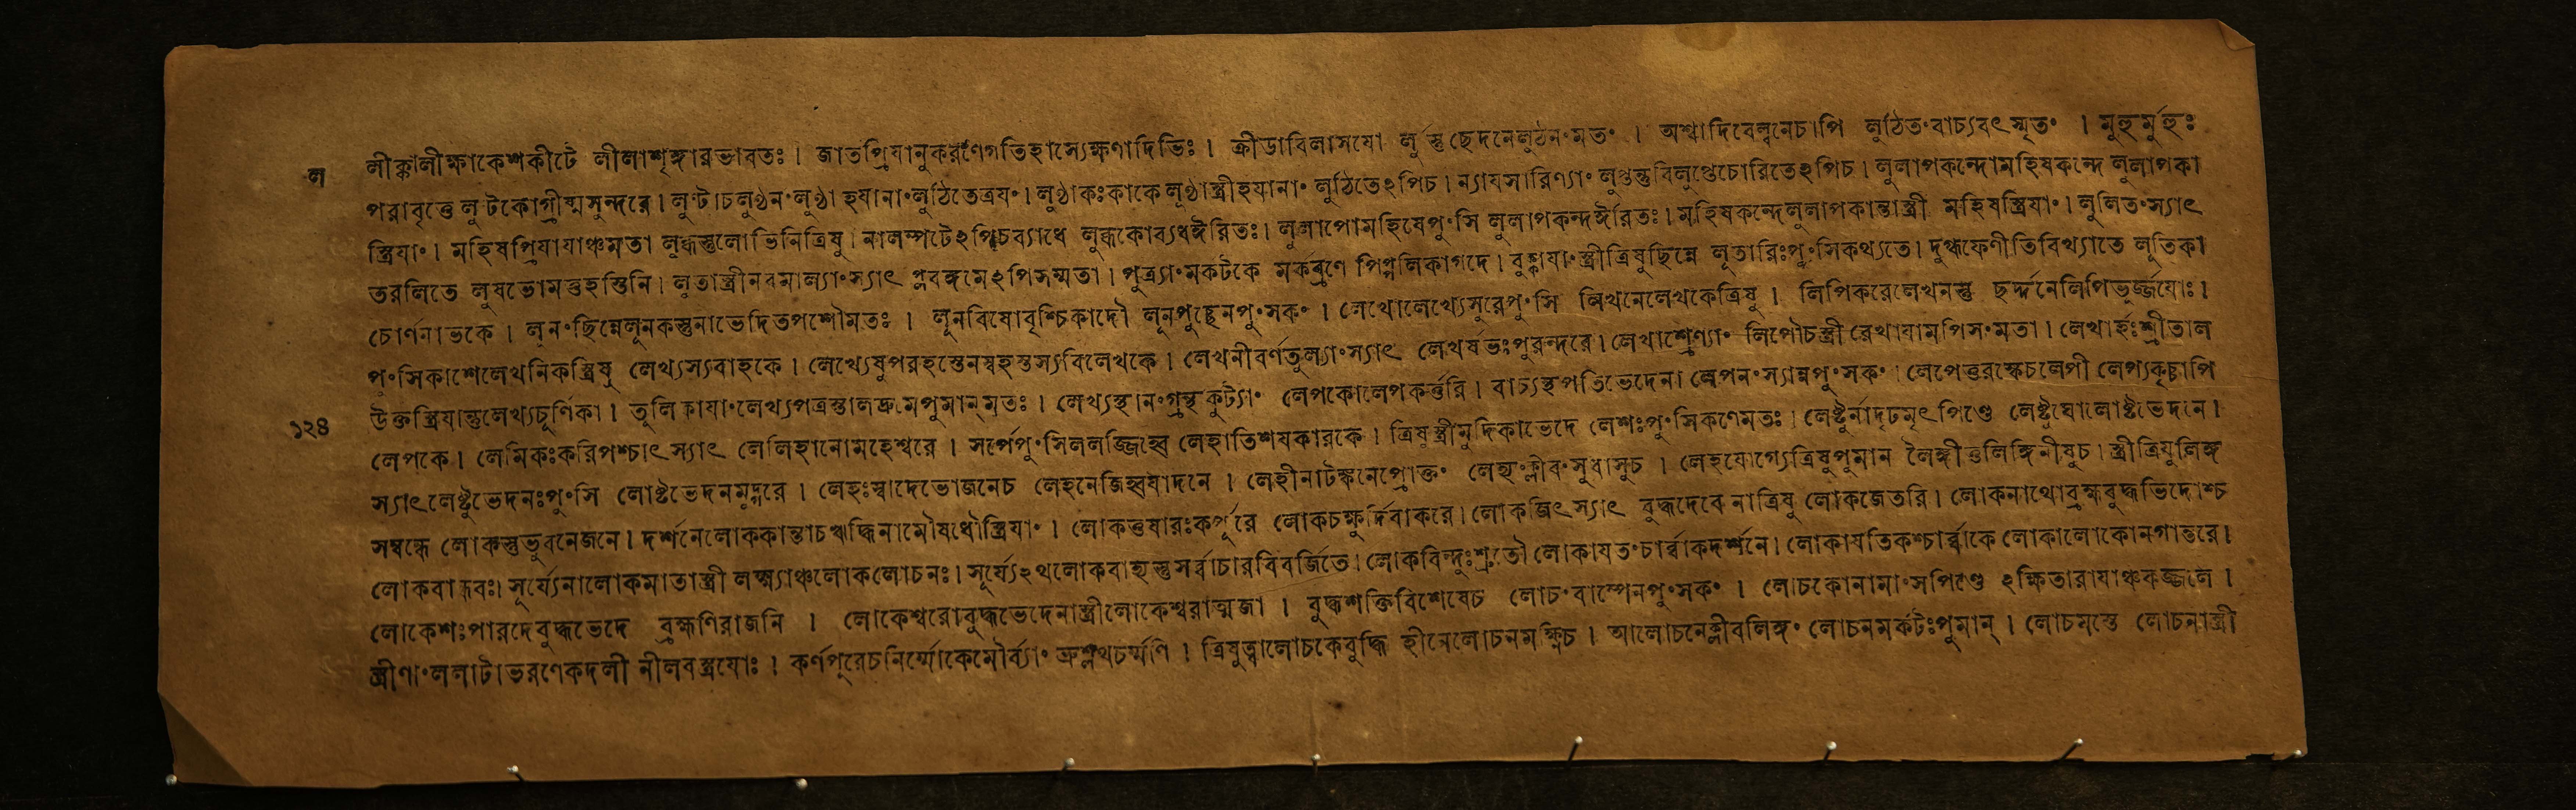 ল লীক্কালীক্ষাকেশকীটে লীলাশৃঙ্গারভাবতঃ। জাতপ্রিযানুকরণেগতিহাস্যেক্ষণাদিভিঃ। ক্রীডাবিলাসযো লুস্তুছেদনেলুঠন°মত°। অশ্বাদিবেল্বনেচাপি লুঠিত°বাচ্যবৎস্মৃত°। মুহুর্মুহুঃ
পরাবৃত্তে লুটকোগ্রীষ্মসুন্দরে। লু°টাচলুণ্ঠন°লুণ্ঠা হযানা°লুঠিতেত্রয°। লুণ্ঠাকঃকাকেলুণ্ঠাস্ত্রীহযানা° লুঠিতেঽপিচ। ন্যাযসারিণ্যা° লুপ্তন্তুবিলুপ্তেচোরিতেঽপিচ। লুলাপকন্দোমহিষকন্দে লুলাপকা
স্ত্রিযা°। মহিষপ্রিযাযাঞ্চমতা লুব্ধস্তুলোভিনিত্রিষু। নালম্পটেঽপিচব্যাধে লুব্ধকোব্যধঈরিতঃ। লুলাপোমহিষেপু°সি লুলাপকন্দঈরিতঃ। মহিষকন্দেলুলাপকান্তাস্ত্রী মহিষস্ত্রিযা°। লুলিত°স্যাৎ
তরলিতে লুষভোমত্তহস্তিনি। লূতাস্ত্রীনবমাল্যা°স্যাৎ প্লবঙ্গমেঽপিসম্মতা। পুত্র্যা°মকটকে মর্কব্রণে পিপ্পলিকাগদে। স্ত্রীত্রিষুছিন্নে লূতারিঃপু°সিকথ্যতে। দুগ্ধফেণীতিবিখ্যাতে লূতিকা
চোর্ণনাভকে। লূন°ছিন্নেলূনকস্তুনাভেদিতপশৌমতঃ। লূনবিষোবৃশ্চিকাদৌ লূনপুচ্ছেনপু°সক°। লেখোলেখ্যেসুরেপু°সি লিখনেলেখকেত্রিষু। লিপিকরেলেখনন্তু ছর্দ্দনেলিপিভূর্জ্জযোঃ।
পু°সিকাশেলেখনিকস্ত্রিষু লেখ্যস্যবাহকে। লেখ্যেষুপরহস্তেনস্বহস্তস্যবিলেখকে। লেখনীবর্ণতুল্যা°স্যাৎ লেখর্ষভঃপুরন্দরে। লেখাশ্রেণ্যা° লিপৌচস্ত্রী রেখাযামপিস°মতা। লেখার্হঃশ্রীতাল
১২৪ উক্তস্ত্রিযান্তুলেখ্যচূর্ণিকা। তূলিকাযা°লেখ্যপত্রস্তালদ্রুমেপুমান্‌মতঃ। লেখ্যস্থান°গ্রন্থকুট্যা° লেপকোলেপকর্ত্তরি। বাচ্যস্থপতিভেদেনা লেপন°স্যান্নপু°সক°। লেপেত্তরস্কেচলেপী লেপ্যকৃচ্চাপি
লেপকে। লেমিকঃকরিপশ্চাৎস্যাৎ লেলিহানোমহেশ্বরে। সর্পেপু°সিললজ্জিহ্বে লেহাতিশযকারকে। ত্রিষুস্ত্রীমুদিকাভেদে লেশঃপু°সিকণেমতঃ। লেষ্টুর্নাদৃঢমৃৎপিণ্ডে লেষ্টুঘোলোষ্টভেদনে।
স্যাৎলেষ্টুভেদনঃপু°সি লোষ্টভেদনমুদ্গরে। লেহঃস্বাদেভোজনেচ লেহনেজিহ্বযাদনে। লেহীনাটঙ্কনেপ্রোক্ত° লেহ্য°ক্লীব°সুধাসুচ। লেহযোগ্যেত্রিষুপুমান লৈঙ্গীতুলিঙ্গিনীষুচ। স্ত্রীত্রিষুলিঙ্গ
সম্বন্ধে লোকস্তুভুবনেজনে। দর্শনেলোককান্তাচঋদ্ধিনামৌষধৌস্ত্রিযা°। লোকতুষারঃকর্পূরে লোকচক্ষুর্দিবাকরে। লোকজিৎস্যাৎ বুদ্ধদেবে নাত্রিষু লোকজেতরি। লোকনাথোব্রহ্মবুদ্ধভিদোশ্চ
লোকবান্ধবঃ। সূর্য্যেনালোকমাতাস্ত্রী লক্ষ্ম্যাঞ্চলোকলোচনঃ। সূর্য্যেঽথলোকবাহ্যস্তুসর্ব্বাচারবিবর্জিতে। লোকবিন্দুঃশ্রুতৌ লোকাযত°চার্ব্বাকদর্শনে। লোকাযতিকশ্চার্ব্বাকে লোকালোকোনগান্তরে।
লোকেশঃপারদেবুদ্ধভেদে ব্রহ্মণিরাজনি। লোকেশ্বরোবুদ্ধভেদেনাস্ত্রীলোকেশ্বরাত্মজা। বুদ্ধশক্তিবিশেষেচ লোচ°বাষ্পেনপু°সক°। লোচকোনামা°সপিণ্ডে ঽক্ষিতারাযাঞ্চকজ্জলে।
স্ত্রীণা°ললাটাভরণেকদলী নীলবস্ত্রযোঃ। কর্ণপূরেচনির্ম্মোকেমৌর্ব্ব্যা° ভ্রূশ্লথচর্ম্মণি। ত্রিষুত্বালোচকেবুদ্ধি হীনেলোচনমক্ষ্ণিচ। আলোচনেক্লীবলিঙ্গ° লোচনমর্কটঃপুমান্। লোচমস্তে লোচনাস্ত্রী